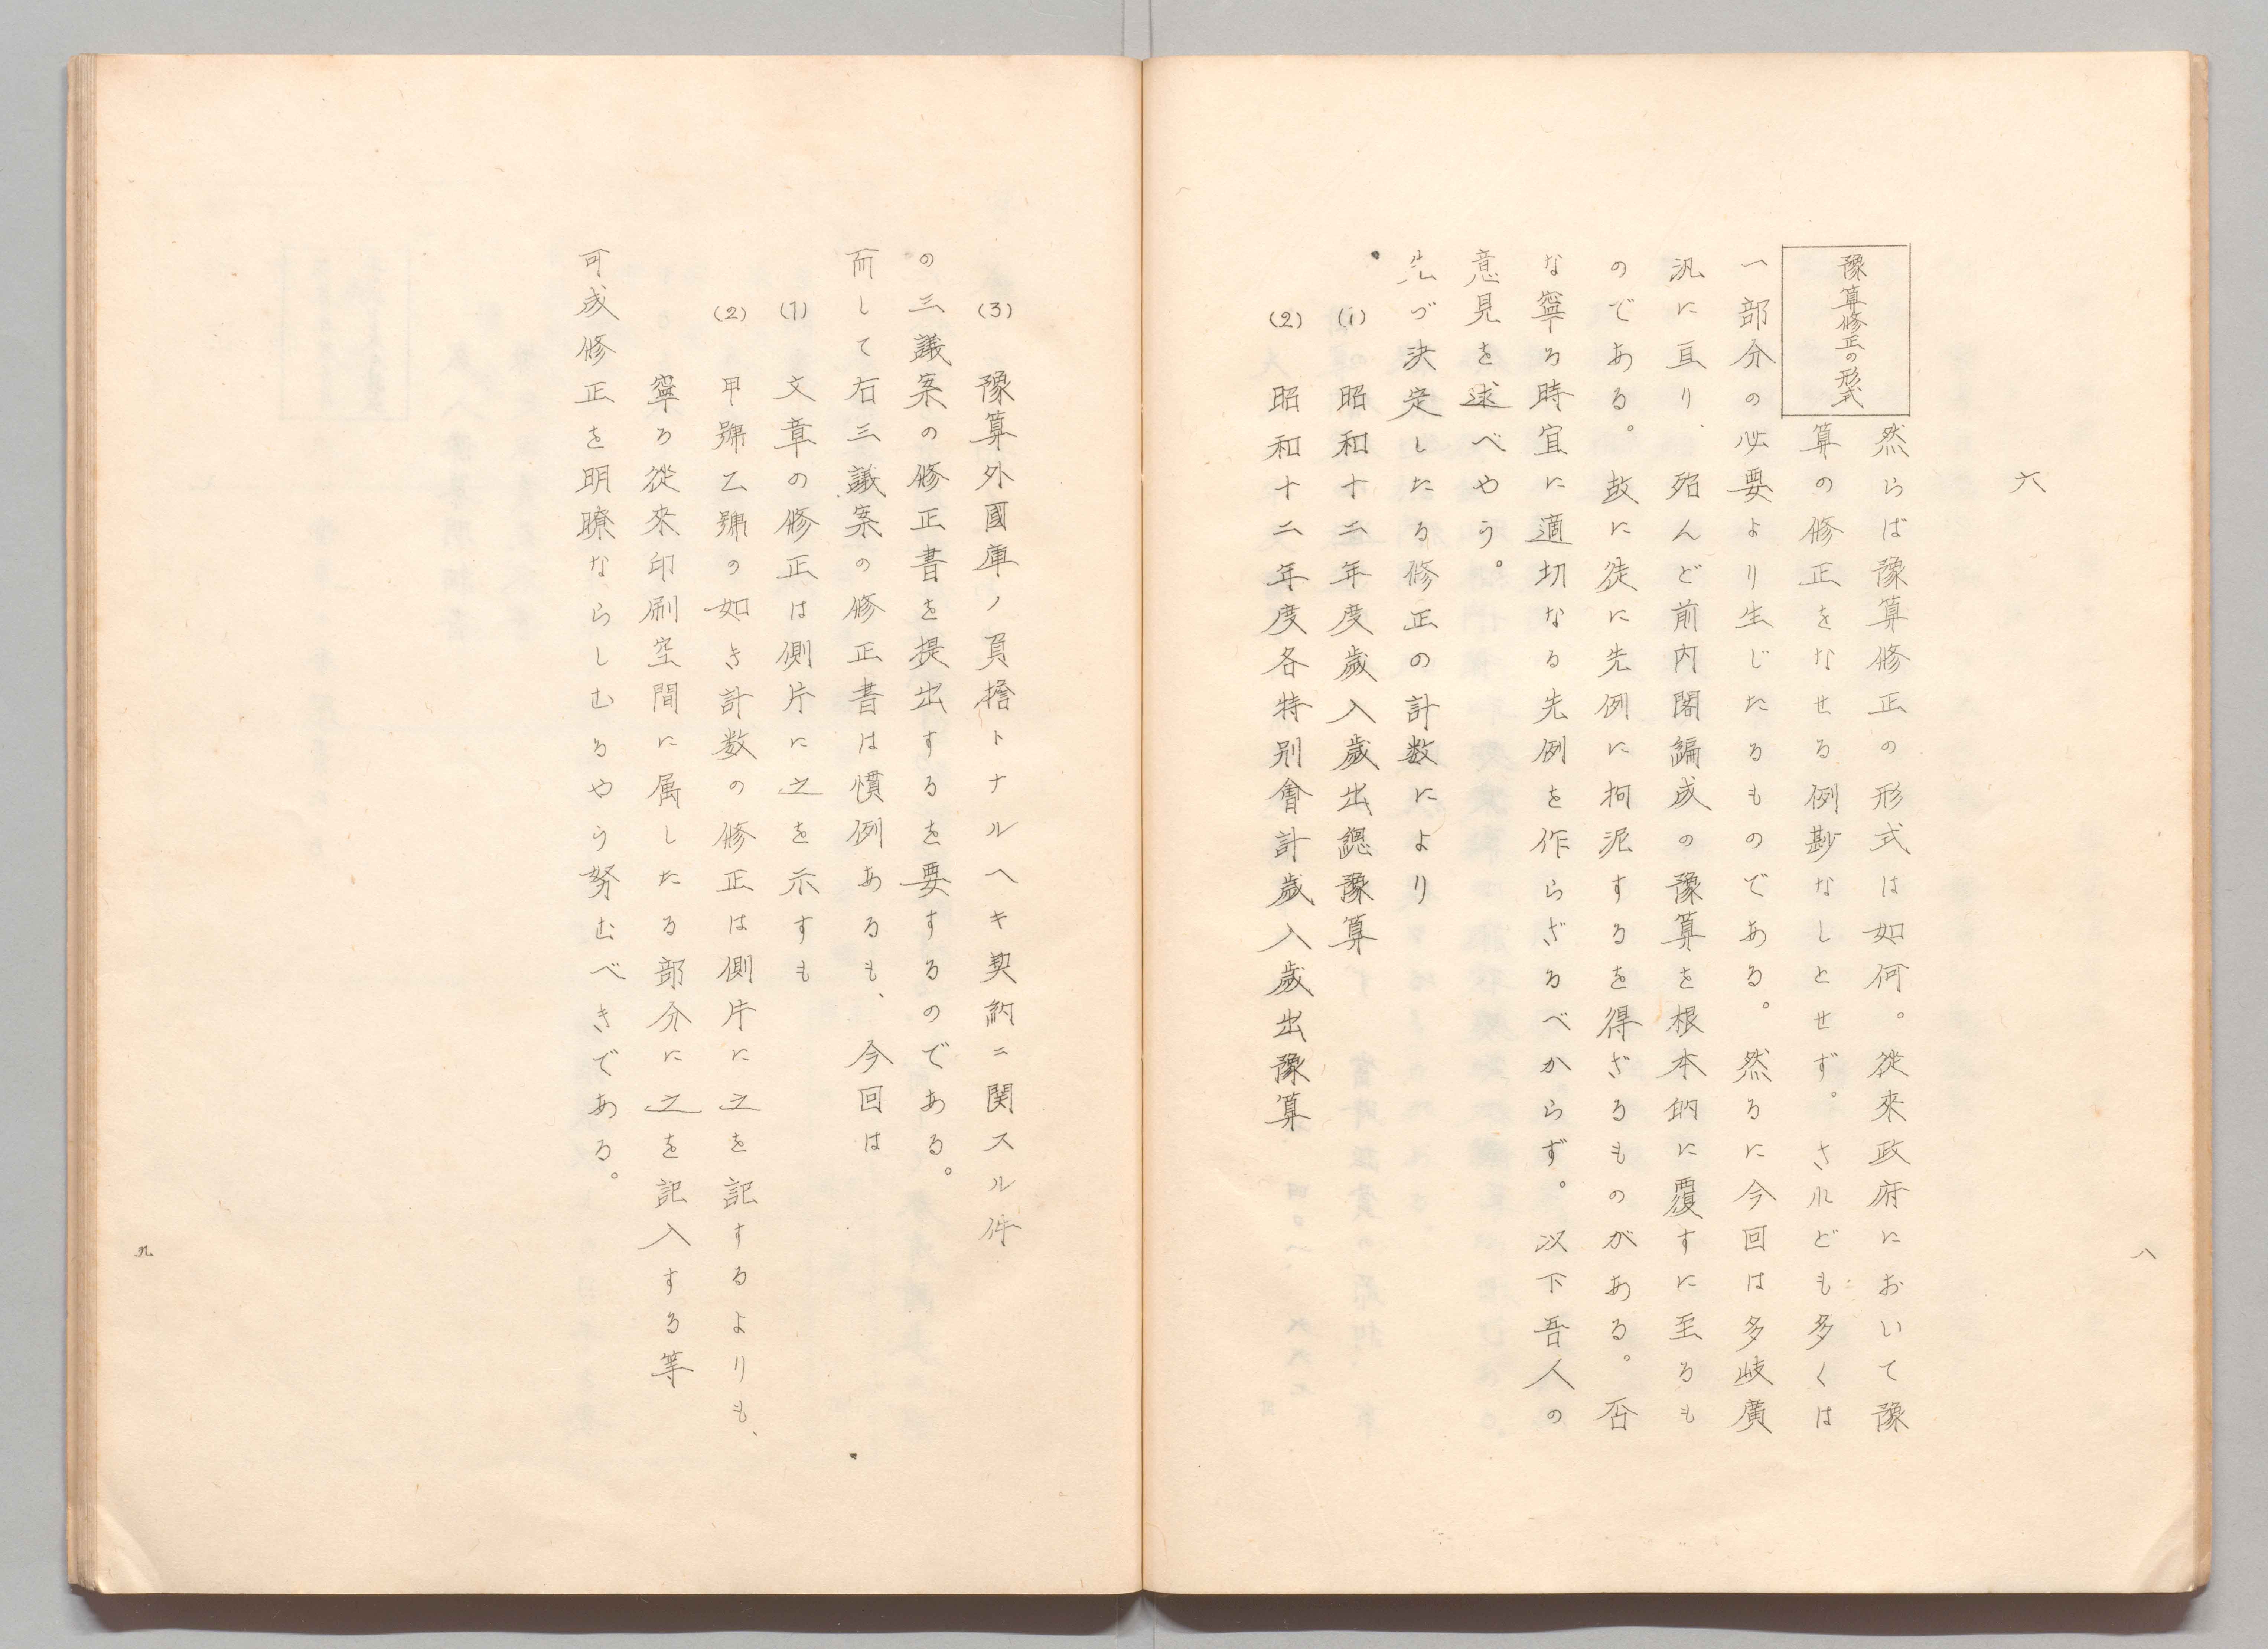 六
豫算修正の形式
然らば豫算修正の形式は如何。從來政府において豫
算の修正をなせる例尠なしとせず。されども多くは
一部分の必要より生じたるものである。然るに今回は多岐廣
汎に亘り、殆んど前内閣編成の豫算を根本的に覆すに至るも
のである。故に徒に先例に拘泥するを得ざるものがある。否
な寧ろ時宜に適切なる先例を作らざるべからず。以下吾人の
意見を述べやう。
先づ決定したる修正の計数により
(1) 昭和十二年度歳入歳出總豫算
(2) 昭和十二年度各特別會計歳入歳出豫算
八
(3) 豫算外國庫ノ負擔トナルヘキ契約ニ関スル件
の三議案の修正書を提出するを要するのである。
而して右三議案の修正書は慣例あるも、今回は
(1) 文章の修正は側片に之を示すも
(2) 甲號乙號の如き計数の修正は側片に之を記するよりも、
寧ろ從來印刷空間に属したる部分に之を記入する等
可成修正を明瞭ならしむるやう努むべきである。
九